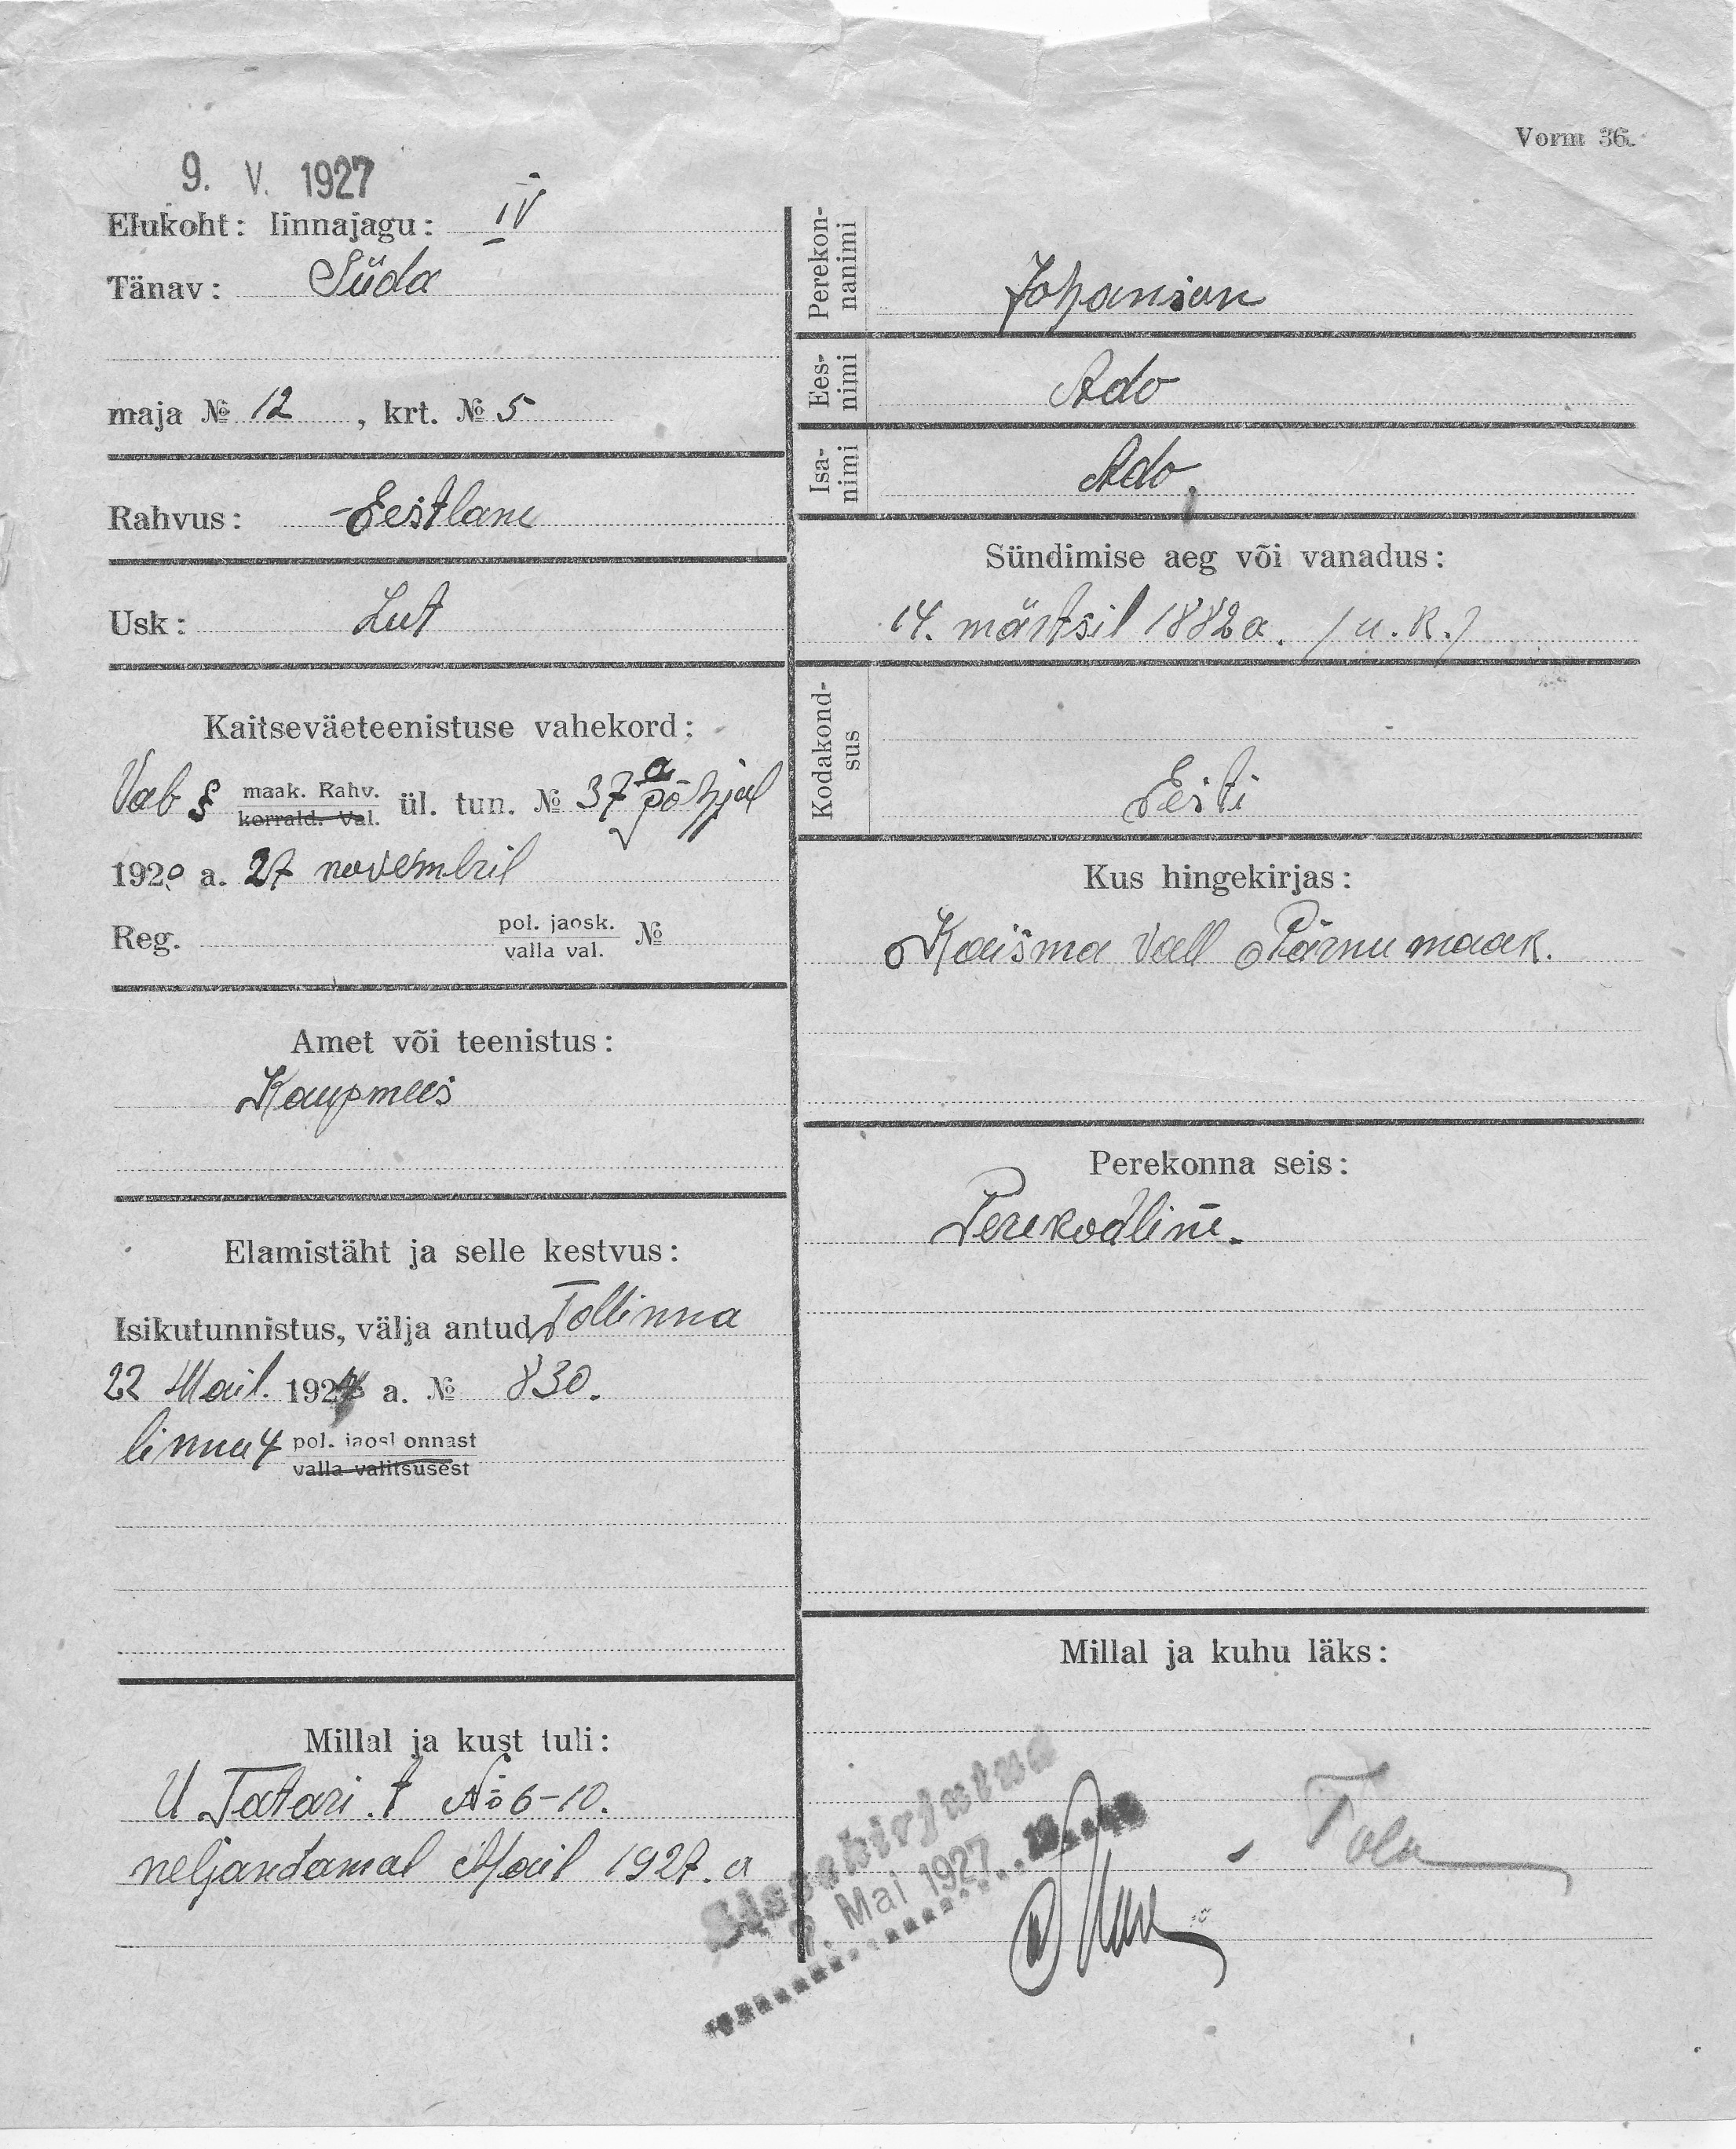 Vorm 36.
9. V. 1927
Elukoht: linnajagu: IV
Tänav: Süda
maja № 12, krt. № 5
Rahvus: Eestlane
Usk: Lut
Kaitseväeteenistuse vahekord:
Vab § maak. Rahv. ül. tun. № 37a põhjal
korrald. Val.
1920 a. 27 novembril
Reg. pol. jaosk. №
valla val.
Amet või teenistus:
Kaupmees
Elamistäht ja selle kestvus:
Isikutunnistus, välja antud Tallinna
22 Mail. 1924 a. № 830.
linna 4 pol. jaoskonnast
valla valitsusest
Millal ja kust tuli:
U Tatari. t № 6-10.
neljandamal Mail 1927. a
Perekon-
nanimi
Johanson
Ees-
nimi
Ado
Isa-
nimi
Ado.
Sündimise aeg või vanadus:
14. märtsil 1882 a. /u. k./
Kodakond-
sus
Eesti
Kus hingekirjas:
Kaisma vall Pärnu maak.
Perekonna seis:
Perekodline.
Millal ja kuhu läks:
Sissekirjutud
7. Mai 1927